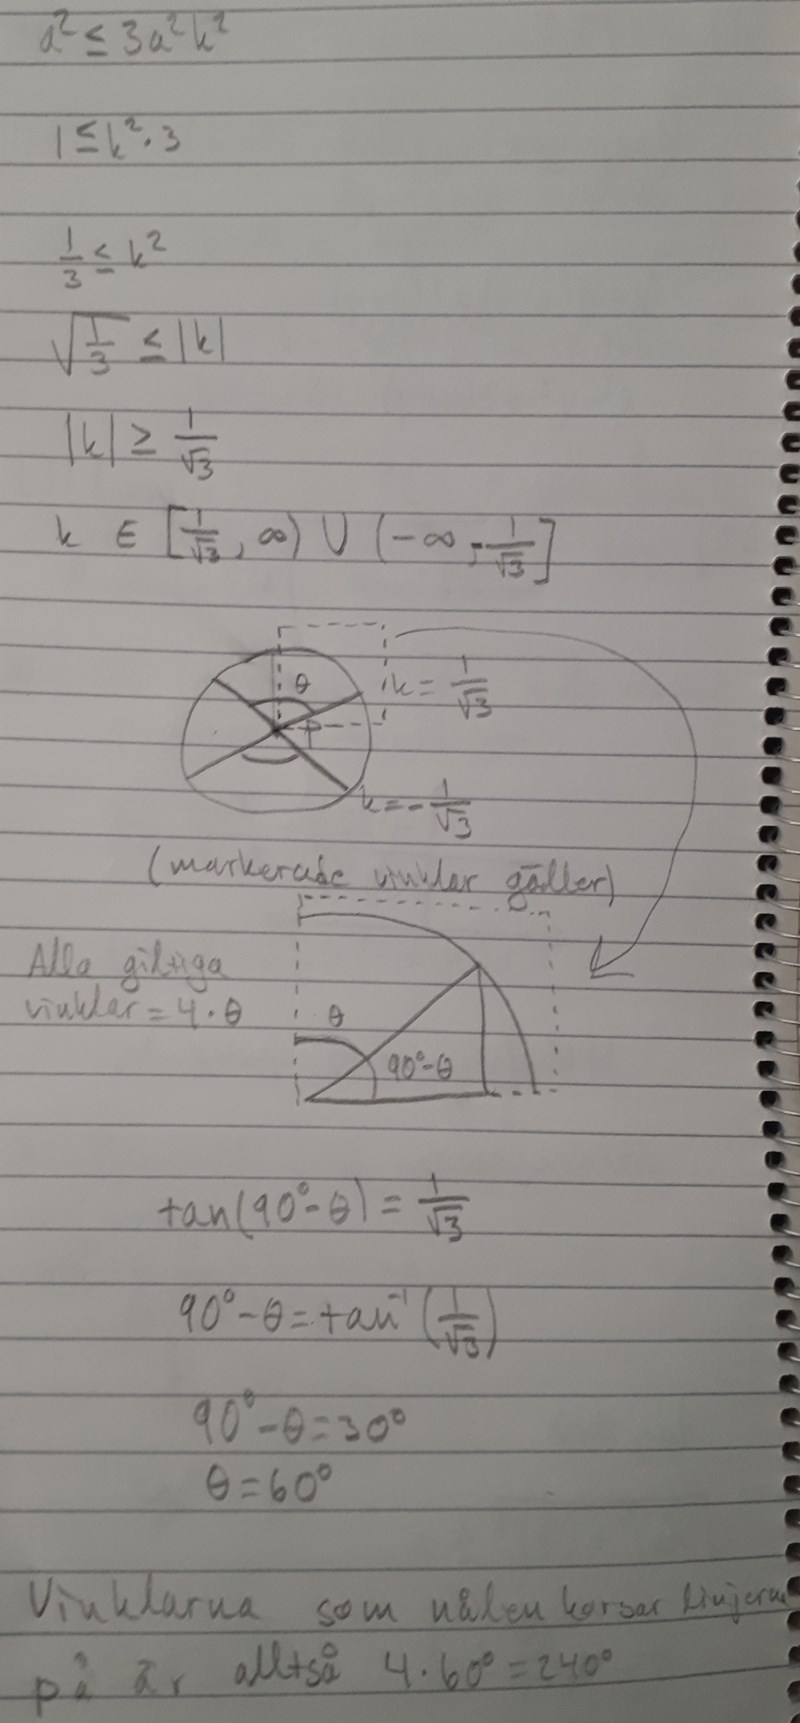 a² ≤ 3a²k²
1 ≤ k² · 3
1/3 ≤ k²
√(1/3) ≤ |k|
|k| ≥ 1/√3
k ∈ [1/√3, ∞) ∪ (-∞, -1/√3]
θ
k = 1/√3
P
k = -1/√3
(markerade vinklar gäller)
Alla giltiga
vinklar = 4 · θ
θ
90° - θ
tan(90° - θ) = 1/√3
90° - θ = tan⁻¹(1/√3)
90° - θ = 30°
θ = 60°
Vinklarna som nålen korsar linjerna
på är alltså 4 · 60° = 240°